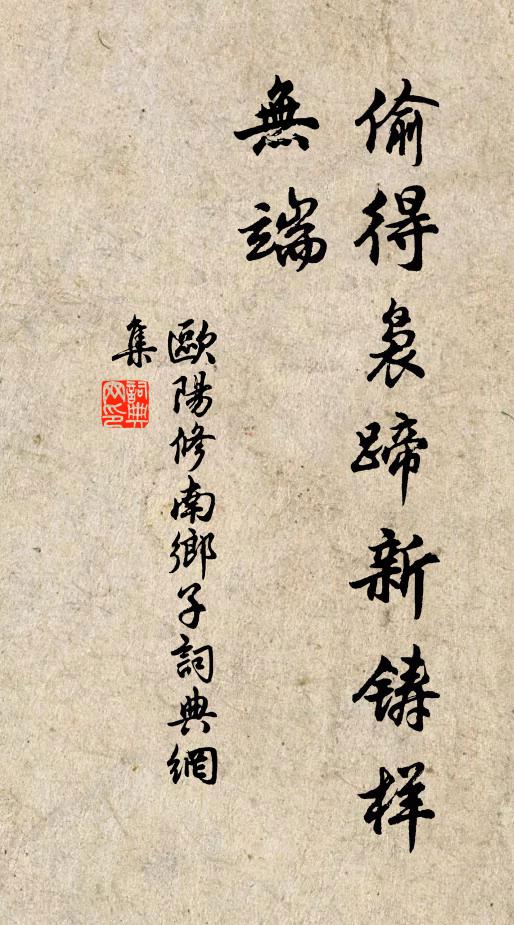 偷得裊蹄新铸样
無端
歐陽修南鄉子詞典網
集
詞典
网印